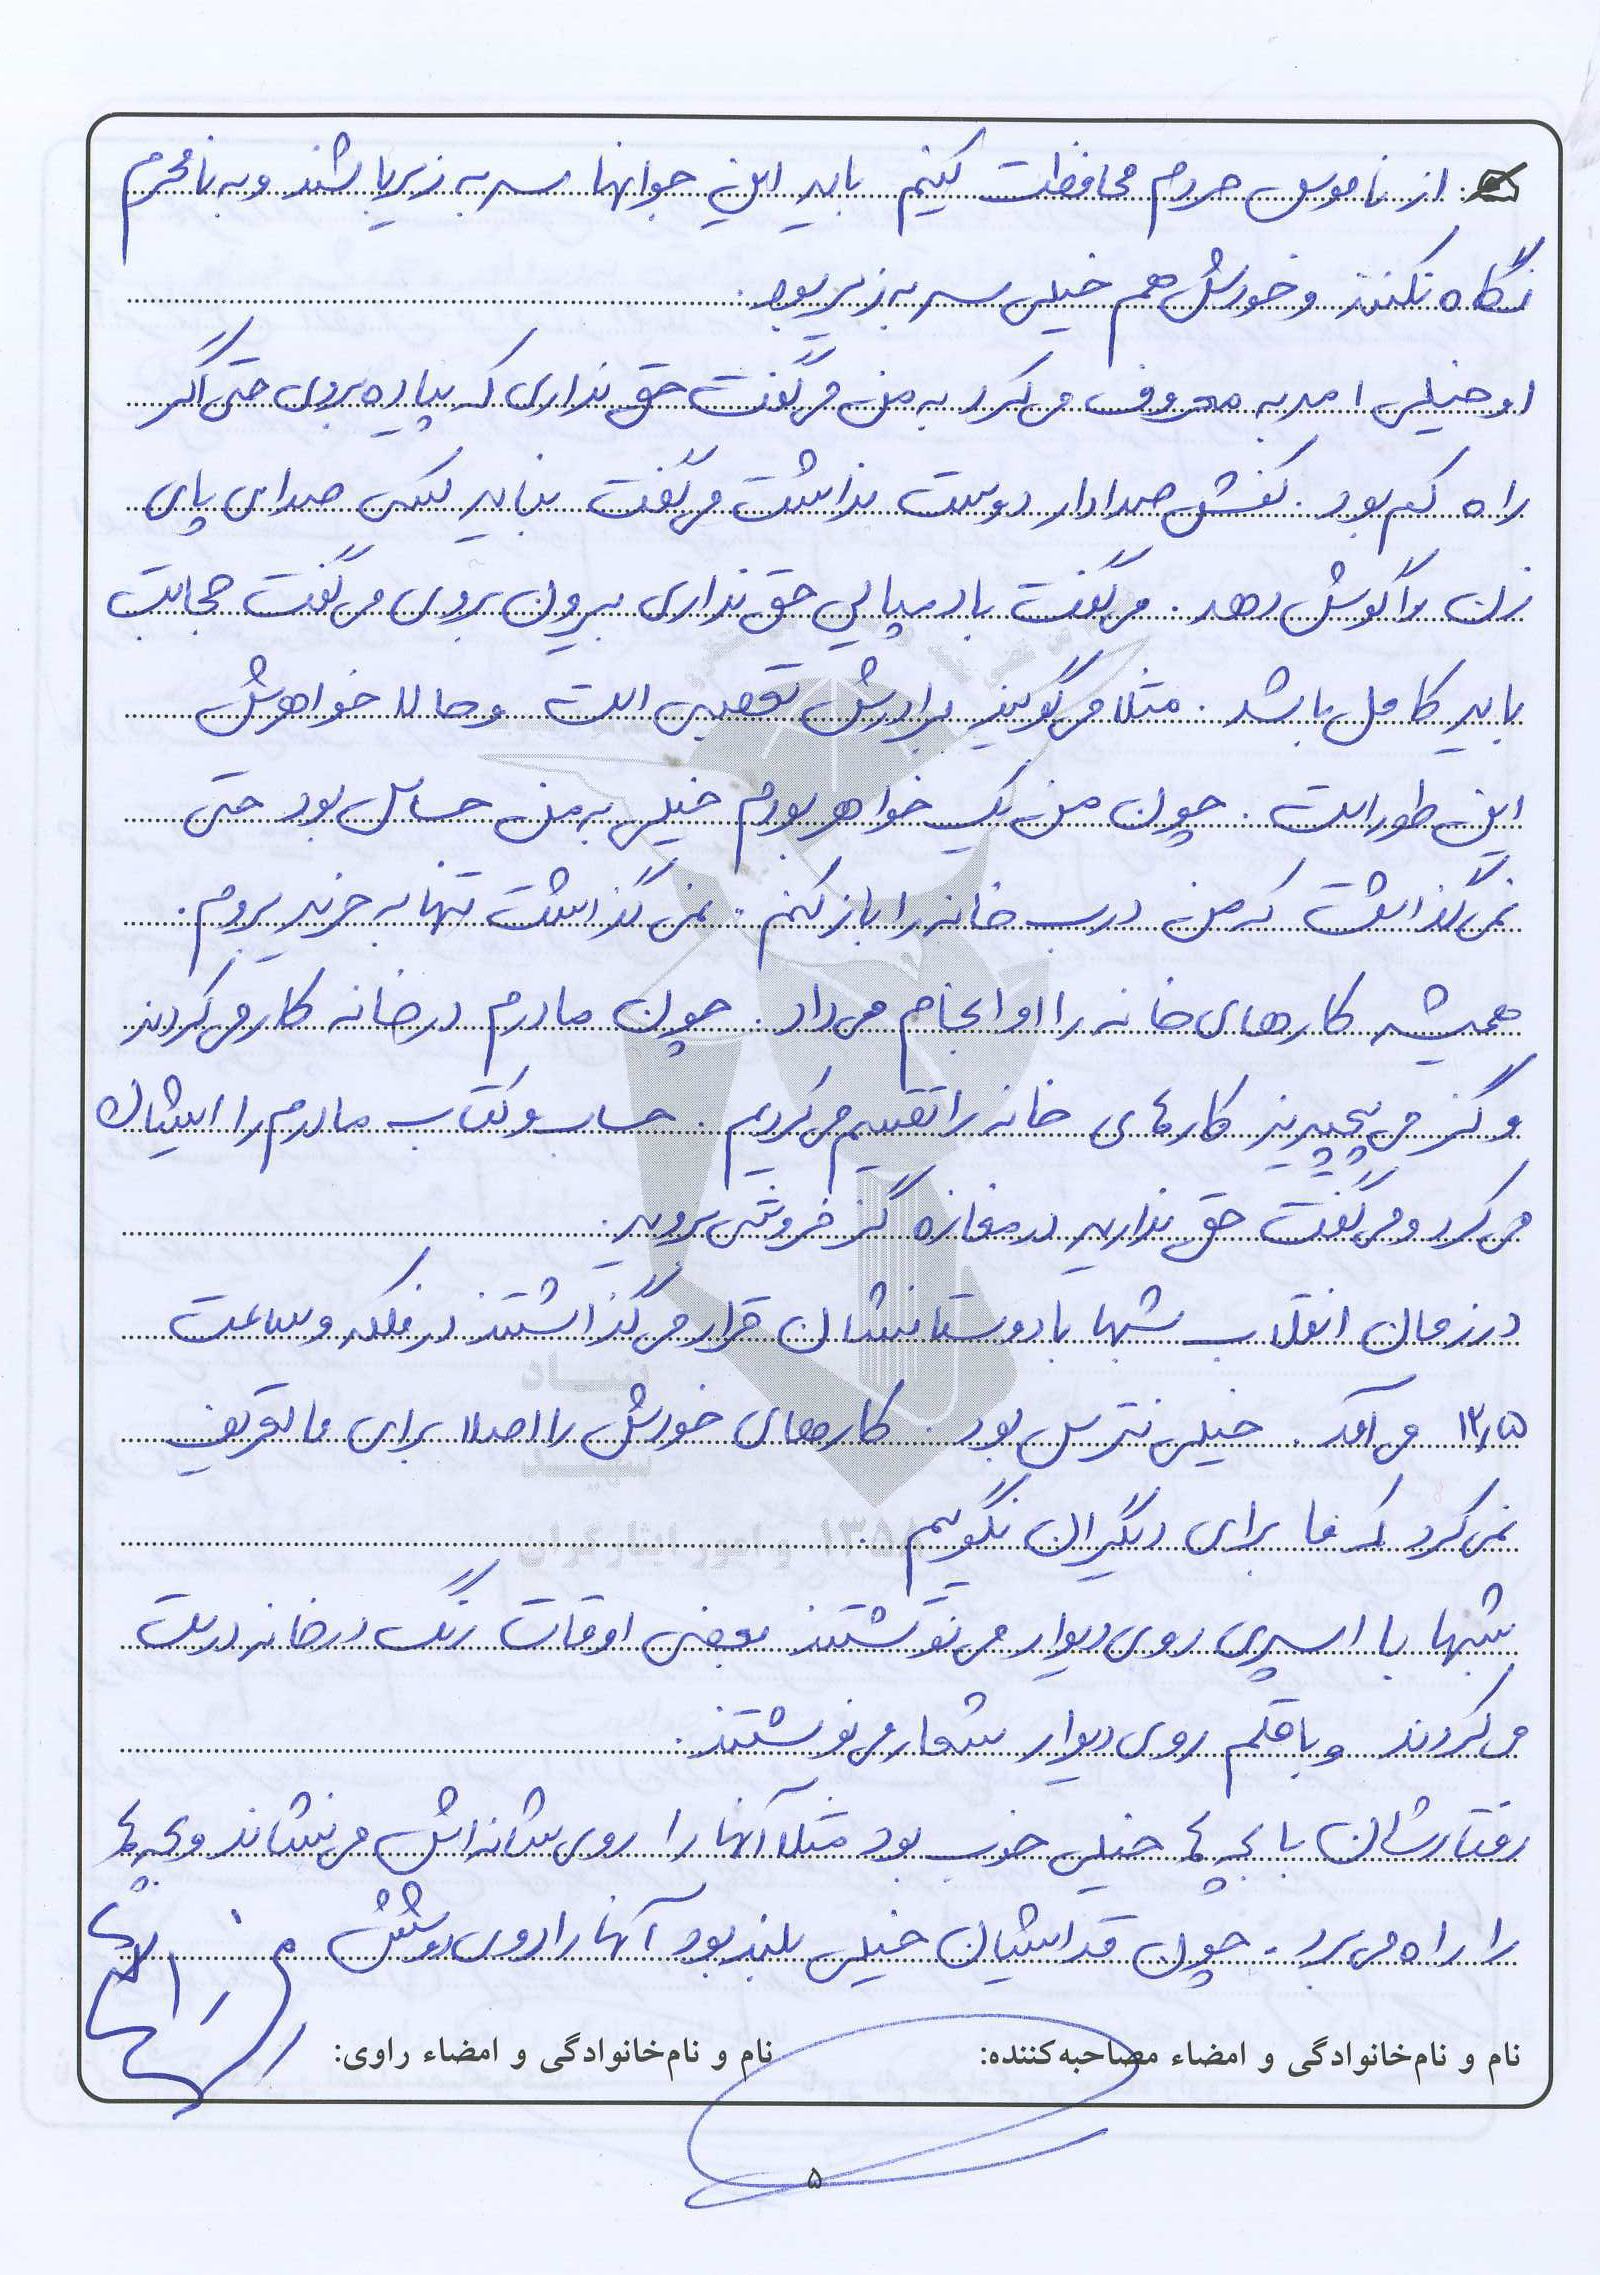 از ناموس مردم محافظت کنیم باید این جوانها سر به زیر باشند و به نامحرم
نگاه نکنند و خودش هم خیلی سر به زیر بود.
او خیلی امر به معروف می‌کرد به من می‌گفت حق نداری که پیاده بروی حتی اگر
راه کم بود. کفش صدادار دوست نداشت می‌گفت نباید کسی صدای پای
زن را گوش دهد. می‌گفت با دمپایی حق نداری بیرون بروی می‌گفت حجابت
باید کامل باشد. مثلا می‌گویند برادرش تعصبی است و حالا خواهرش
این طور است. چون من یک خواهر بودم خیلی به من حساس بود حتی
نمی‌گذاشت که من درب خانه را باز کنم. نمی‌گذاشت تنها به خرید بروم.
همیشه کارهای خانه را او انجام می‌داد. چون مادرم در خانه کار می‌کردند
و گز می‌پیچیدند کارهای خانه را تقسیم می‌کردیم. حساب و کتاب مادرم را ایشان
می‌کرد و می‌گفت حق ندارید در مغازه گز فروشی بروید.
در زمان انقلاب شبها با دوستانشان قرار می‌گذاشتند در فلکه و ساعت
۱۲/۵ می‌آمد. خیلی نترس بود. کارهای خودش را اصلا برای ما تعریف
نمی‌کرد که ما برای دیگران نگوییم.
شبها با اسپری روی دیوار می‌نوشتند بعضی اوقات رنگ در خانه درست
می‌کردند و با قلم روی دیوار شعار می‌نویشتند.
رفتارشان با بچه‌ها خیلی خوب بود مثلا آنها را روی شانه‌اش می‌نشاند و بچه‌ها
را راه می‌برد. چون قد ایشان خیلی بلند بود آنها را روی دوشش
نام و نام‌خانوادگی و امضاء مصاحبه‌کننده: نام و نام‌خانوادگی و امضاء راوی:
۵